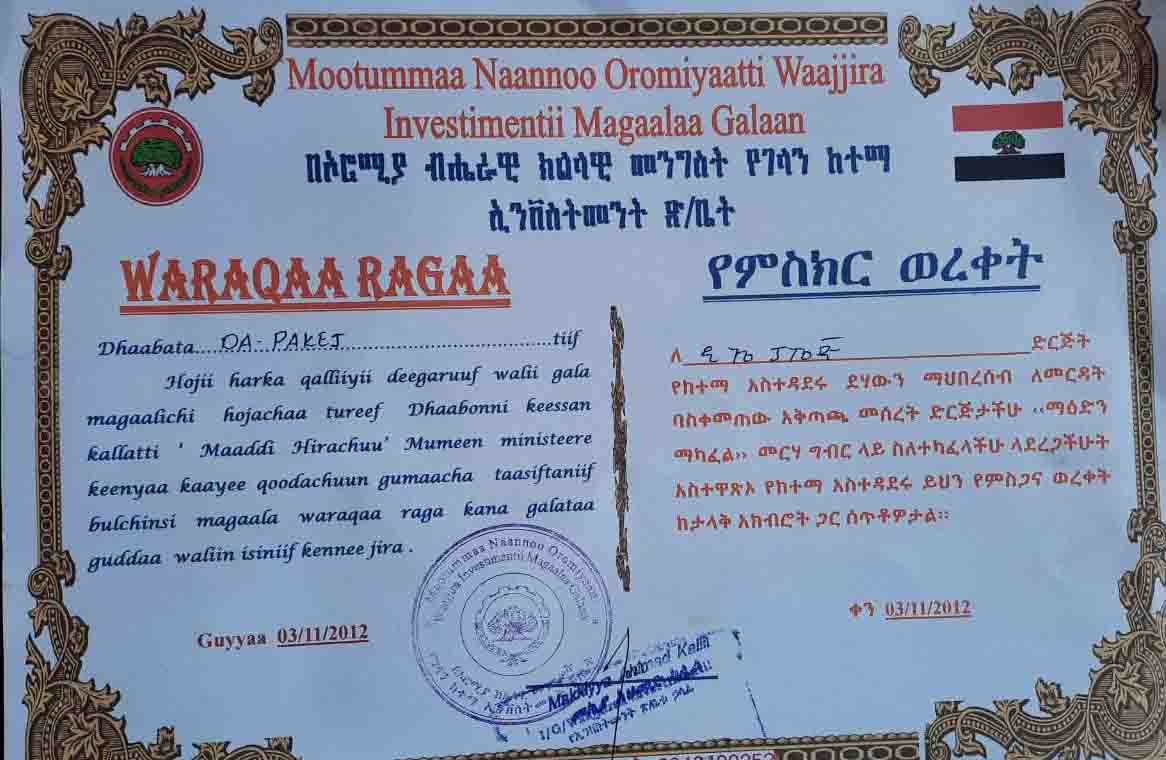 Mootummaa Naannoo Oromiyaatti Waajjira
Investimentii Magaalaa Galaan
በኦሮሚያ ብሔራዊ ክልላዊ መንግስት የገላን ከተማ
ኢንቨስትመንት ጽ/ቤት
WARAQAA RAGAA
Dhaabata....DA-PAKEJ....tiif
Hojii harka qalliiyii deegaruuf walii gala
magaalichi hojachaa tureef Dhaabonni keessan
kallatti ' Maaddi Hirachuu' Mumeen ministeere
keenyaa kaayee qoodachuun gumaacha taasiftaniif
bulchinsi magaala waraqaa raga kana galataa
guddaa waliin isiniif kennee jira .
Guyyaa 03/11/2012
የምስክር ወረቀት
ለ ዲኤ ፓኬጅ ድርጅት
የከተማ አስተዳደሩ ደሃውን ማህበረሰብ ለመርዳት
ባስቀመጠው አቅጣጫ መሰረት ድርጅታችሁ ‹‹ማዕድን
ማካፈል›› መርሃ ግብር ላይ ስለተካፈላችሁ ላደረጋችሁት
አስተዋጽኦ የከተማ አስተዳደሩ ይህን የምስጋና ወረቀት
ከታላቅ አክብሮት ጋር ሰጥቶዎታል፡፡
ቀን 03/11/2012
Mootummaa Naannoo Oromiyaatti
Waajjira Investimentii Magaalaa Galaan